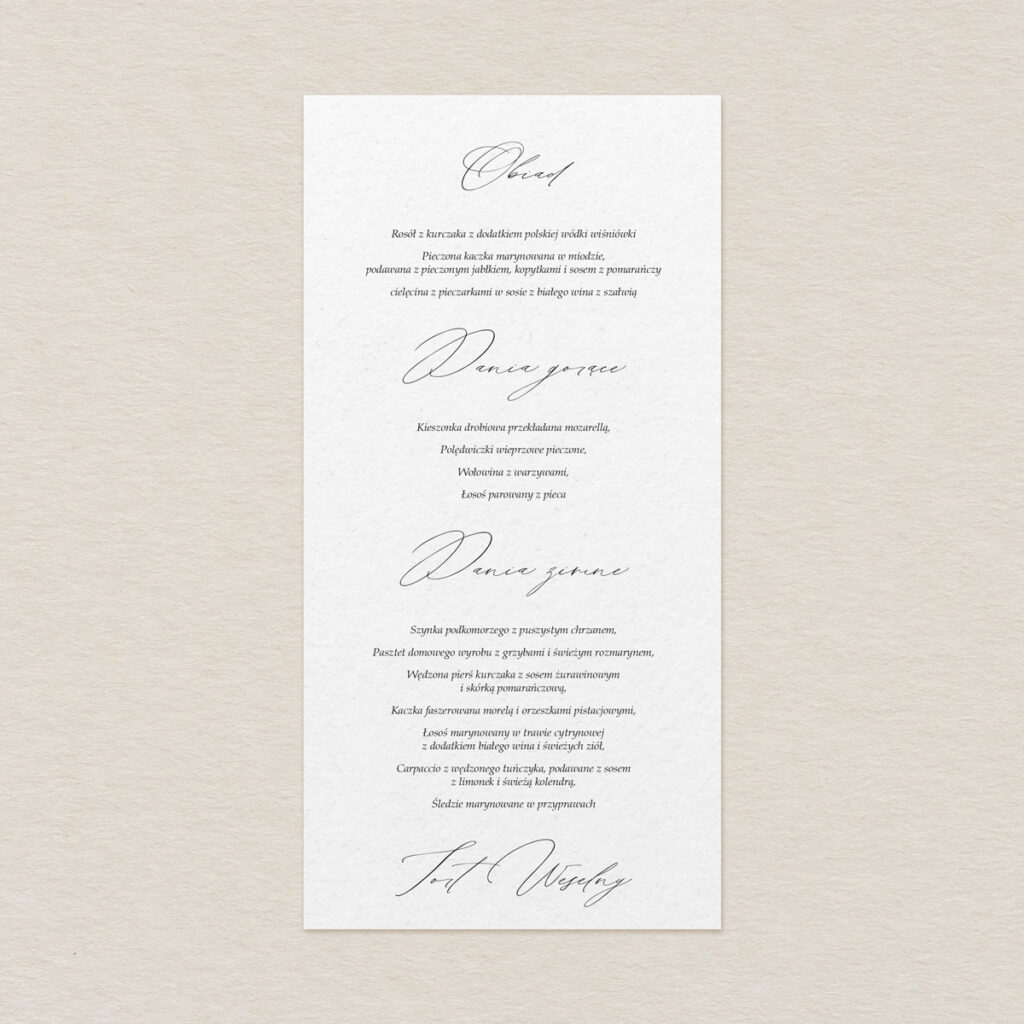 Obiad
Rosół z kurczaka z dodatkiem polskiej wódki wiśniówki
Pieczona kaczka marynowana w miodzie,
podawana z pieczonym jabłkiem, kopytkami i sosem z pomarańczy
cielęcina z pieczarkami w sosie z białego wina z szałwią
Dania gorące
Kieszonka drobiowa przekładana mozarellą,
Polędwiczki wieprzowe pieczone,
Wołowina z warzywami,
Łosoś parowany z pieca
Dania zimne
Szynka podkomorzego z puszystym chrzanem,
Pasztet domowego wyrobu z grzybami i świeżym rozmarynem,
Wędzona pierś kurczaka z sosem żurawinowym
i skórką pomarańczową,
Kaczka faszerowana morelą i orzeszkami pistacjowymi,
Łosoś marynowany w trawie cytrynowej
z dodatkiem białego wina i świeżych ziół,
Carpaccio z wędzonego tuńczyka, podawane z sosem
z limonek i świeżą kolendrą,
Śledzie marynowane w przyprawach
Tort Weselny